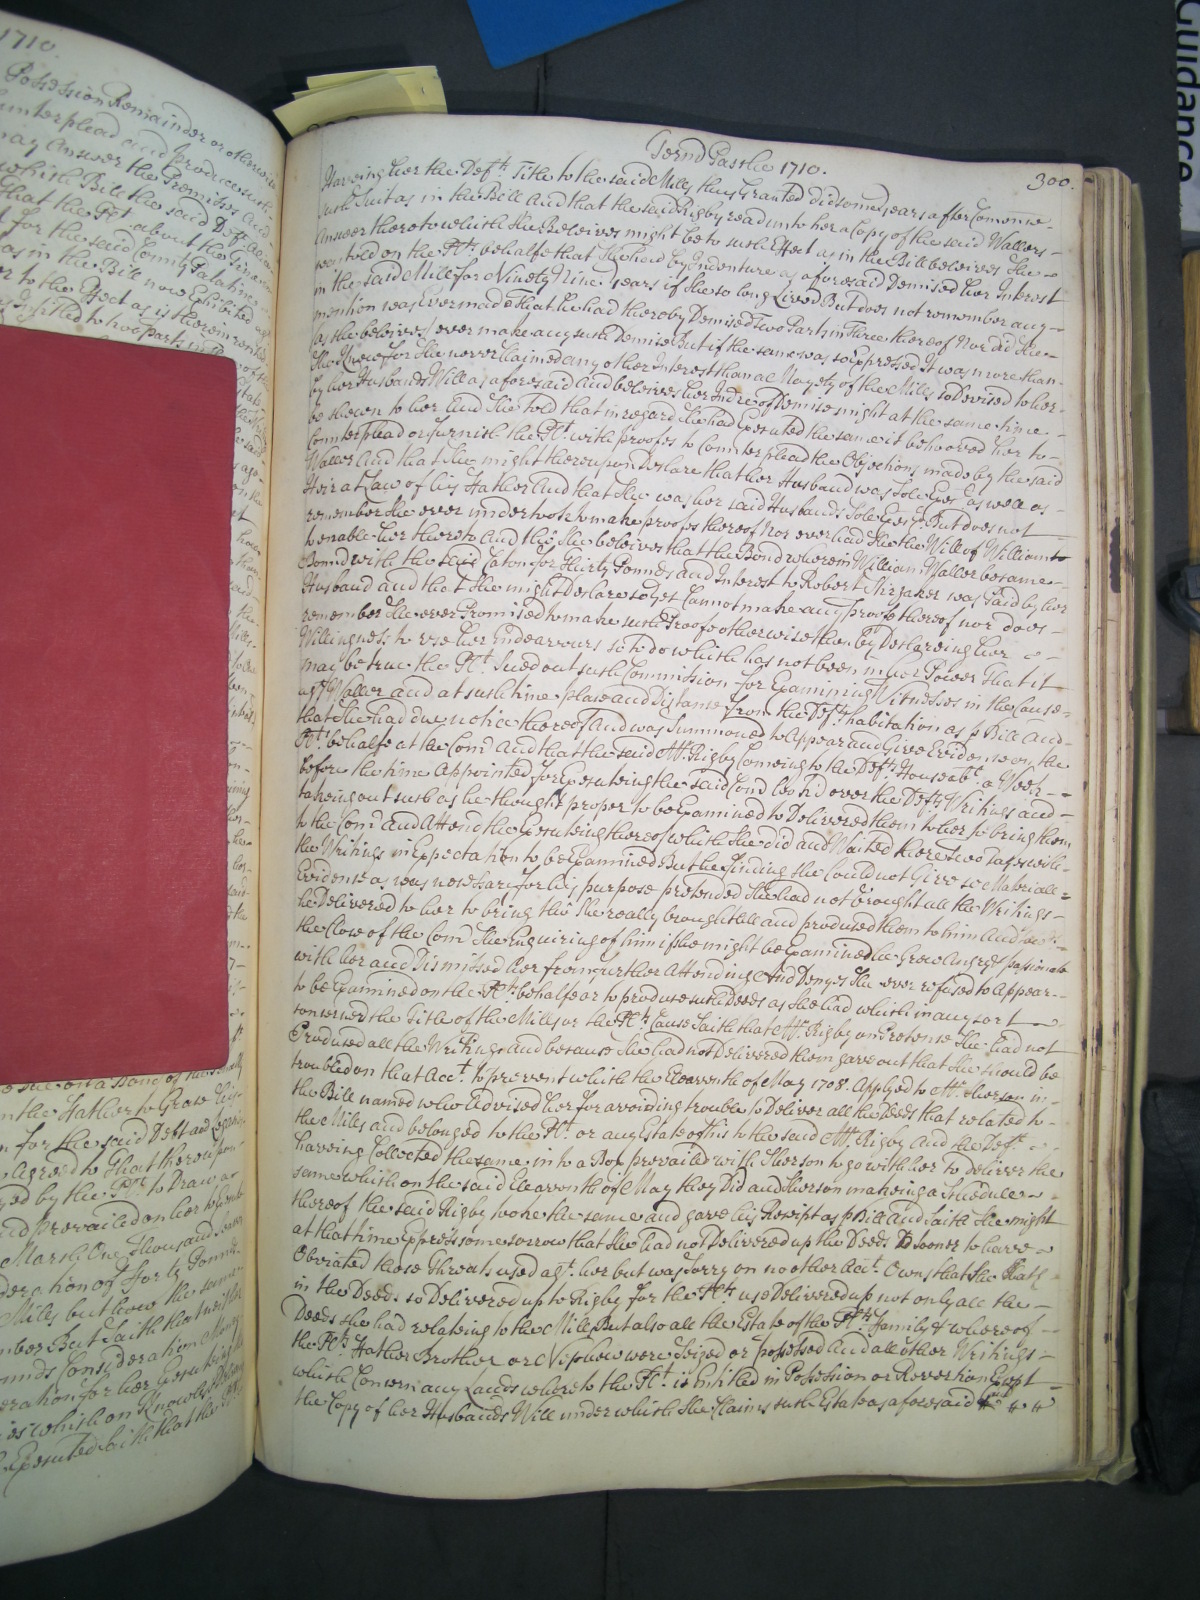 1710.
Possession Remainder or otherwise
Counterplead and produce such
may Answer the Premises And
which Bill the said Deft
That the Plt about the time
for the said County Palatine
as in the Bill now Exhibited
to the Effect as is therein
Intitled to two parts in
Termd Paschæ 1710.
300.
Haveing her the Defts Title to the said Mills thus Granted did some years after Comence
such Suit as in the Bill And that the said Rigby read unto her a Copy of the said Wallers
Answer thereto which She Beleives might be to such Effect as in the Bill beleives She
was told on the Plts behalfe that She had by Indenture as aforesaid Demised her Interest
in the said Mills for Ninety Nine years if she so long Lived But does not remember any
mention was Ever made That he had thereby Demised Two Parts in Three thereof Nor did She
(as she beleives) ever make any such Demise But if the same was so Expressed It was more than
She Knew for She never Claimed any other Interest than a Moyety of the Mills so Devised to her
by her Husbands Will as aforesaid and beleives her Indre of Demise might at the same time
be shewn to her And She told that in regard She had Executed the same it behooved her to
Counterplead or Furnish the Plt with proofes to Counterplead the Objections made by the said
Waller And that She might thereupon Declare that her Husband was Sole Exor as well as
Heir at Law of his Father And that She was her said Husbands Sole Exex But does not
remember She ever undertook to make proofs thereof Nor ever had She the Will of William
to enable her thereto And tho She beleives that the Bond wherein William Waller became
Bound with the said Caton for Thirty Pounds and Interest to Robert Shizaker was Paid by her
Husband and that She might Declare so Yet Cannot make any proofe thereof nor does
remember She ever Promised to make such Proofe otherwise then by Declareing her
Willingness to use her Endeavours so to do which has not been in her Power That it
may be true the Plt Sued out such Commission for Examining Witnesses in the Cause
agt Waller and at such time place and Distance from the Defts habitation as p Bill and
that She had due notice thereof And was Summoned to Appear and Give Evidence on the
Plts behalfe at the Comn And that the said Mr Rigby Comeing to the Defts House abt a Week
before the time Appointed for Executeing the said Comn look'd over the Defts Writeings and
takeing out such as he thought proper to be Examined to Delivered them to her to bring them
to the Comn and Attend the Executeing thereof which She did and Waited there two Days with
the Writings in Expectation to be Examined But he Finding She Could not Give so Materiall
Evidence as was necessary for his purpose pretended She had not brought all the Writings
he Delivered to her to bring tho She really brought all and produced them to him And
the Close of the Comn She Enquiring of him if she might be Examined he Grew Angry & passionate
with her and Dismissed her from further Attending And Denyes She ever refused to Appear
to be Examined on the Plts behalfe or to produce such Deeds as She had which in any sort
concerned the Title of the Mills or the Plts Cause Saith that Mr Rigby on Pretense She had not
Produced all the Writings And because She had not Delivered them gave out that She would be
troubled on that Acct To prevent which She the Eleaventh of May 1708 Applyed to Mr Sherson in
the Bill named who Advised her for avoiding trouble to Deliver all the Deeds that related to
the Mills and belonged to the Plt or any Estate of his to the said Mr Rigby And the Deft
haveing Collected the same into a Box prevailed with Sherson to go with her to deliver the
same which on the said Eleaventh of May they Did and Sherson makeing a Schedule
thereof the said Rigby tooke the same and gave his Receipt as p Bill And Saith She might
at that time Express some sorrow that She had not Delivered up the Deeds sooner to have
Obviated those Threats used agt her but was Sorry on no other Acct Owns that She Hath
in the Deeds so Delivered up to Rigby for the Plts use Delivered up not only all the
Deeds she had relateing to the Mills But also all the Estate of the Plts Family & whereof
the Plts Father Brother or Nephew were Seized or possessed And all other Writeings
which Concern any Lands whereto the Plt is Intitled in Possession or Reversion Except
the Copy of her Husbands Will under which She Claimes such Estate as aforesaid
on the Father to
for the said Debt and
Agreed to That thereupon
by the Plt to Draw a
and prevailed on her to
March One Thousand
deration of Forty Pounds
Mills but how the same
But Saith that neither
Consideration Money
eration for her Executing
which on Knowledge
Executed Saith that the
Guidance